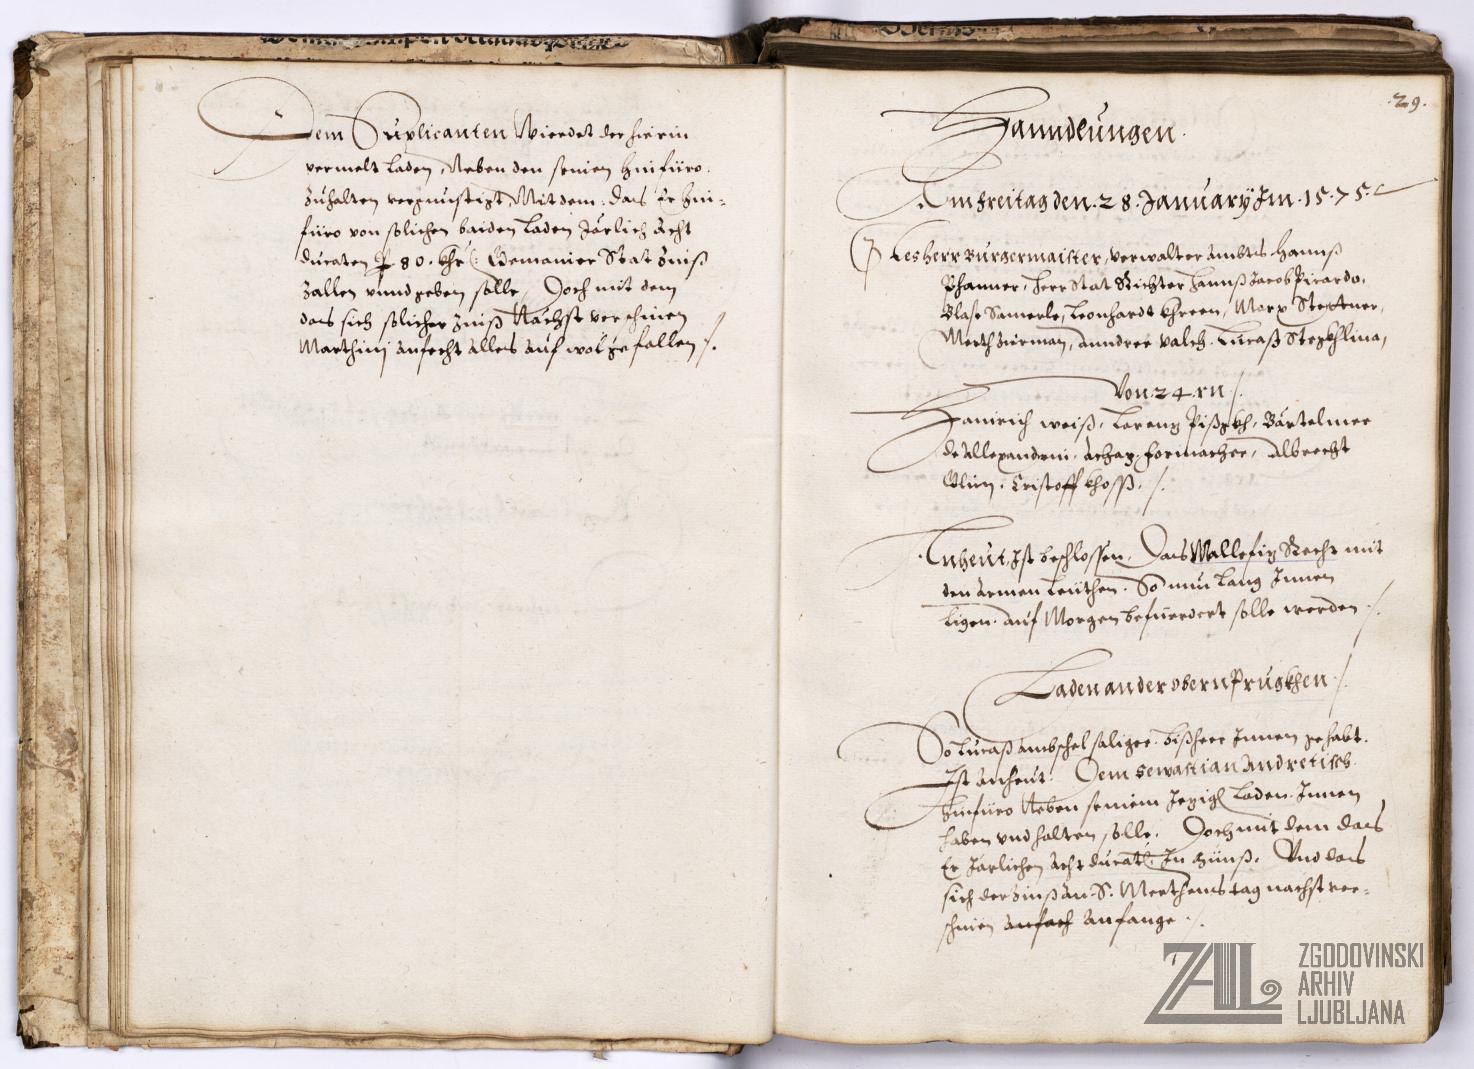 Dem Supplicanten Wierdet der hierin
vermelt Laden, Neben den seinen hinfüro
zuhalten vergunstigt Mit dem, das Er hin-
füro von solichen baiden Laden Järlich Acht
ducaten 80 khr Gemainer Stat Zinß
Zallen vnnd geben solle, Doch mit dem
das sich solicher Zinß Nächst verschinen
Marthinj anfecht Alles Auf wolgefallen /.
29.
Hanndlungen.
Am Freitag den 28 January Im 15.75.
Herr Burgermaister, verwalter Ambts Hannß
Phanner, Herr Stat Richter Hannß Jacob Pirardo,
Blase Samerle, Leonhardt Khreen, Marx Stettner,
Merth Zierman, Anndree Valch, Lucaß
Von 24.rn /.
Hainrich weiß, Lorenz Bartelmee
de Allexandrin, Achaz Formacher, Albrecht
Cristoff Khoß. /.
Anheut Ist beschlossen, Das Mallefiz Recht mit
den Armen Leüthen. So nun Lang Innen
Ligen. auf Morgen befuerdert solle werden /.
Laden an der obern Prugkhen /.
So Lucaß Ambschel saliger bißheer Innen gehabt.
Ist Anheut. Dem Sewastian Andretisch
hinfüro Neben seinem Jezigen Laden Innen
haben vnd halten solle. Doch mit dem das
Er Järlichen Acht ducat. In Zünß. Vnd das
sich der Zinß An S. Merthens tag nachst ver-
schinen anfach Anfange /.
ZAL
ZGODOVINSKI
ARHIV
LJUBLJANA